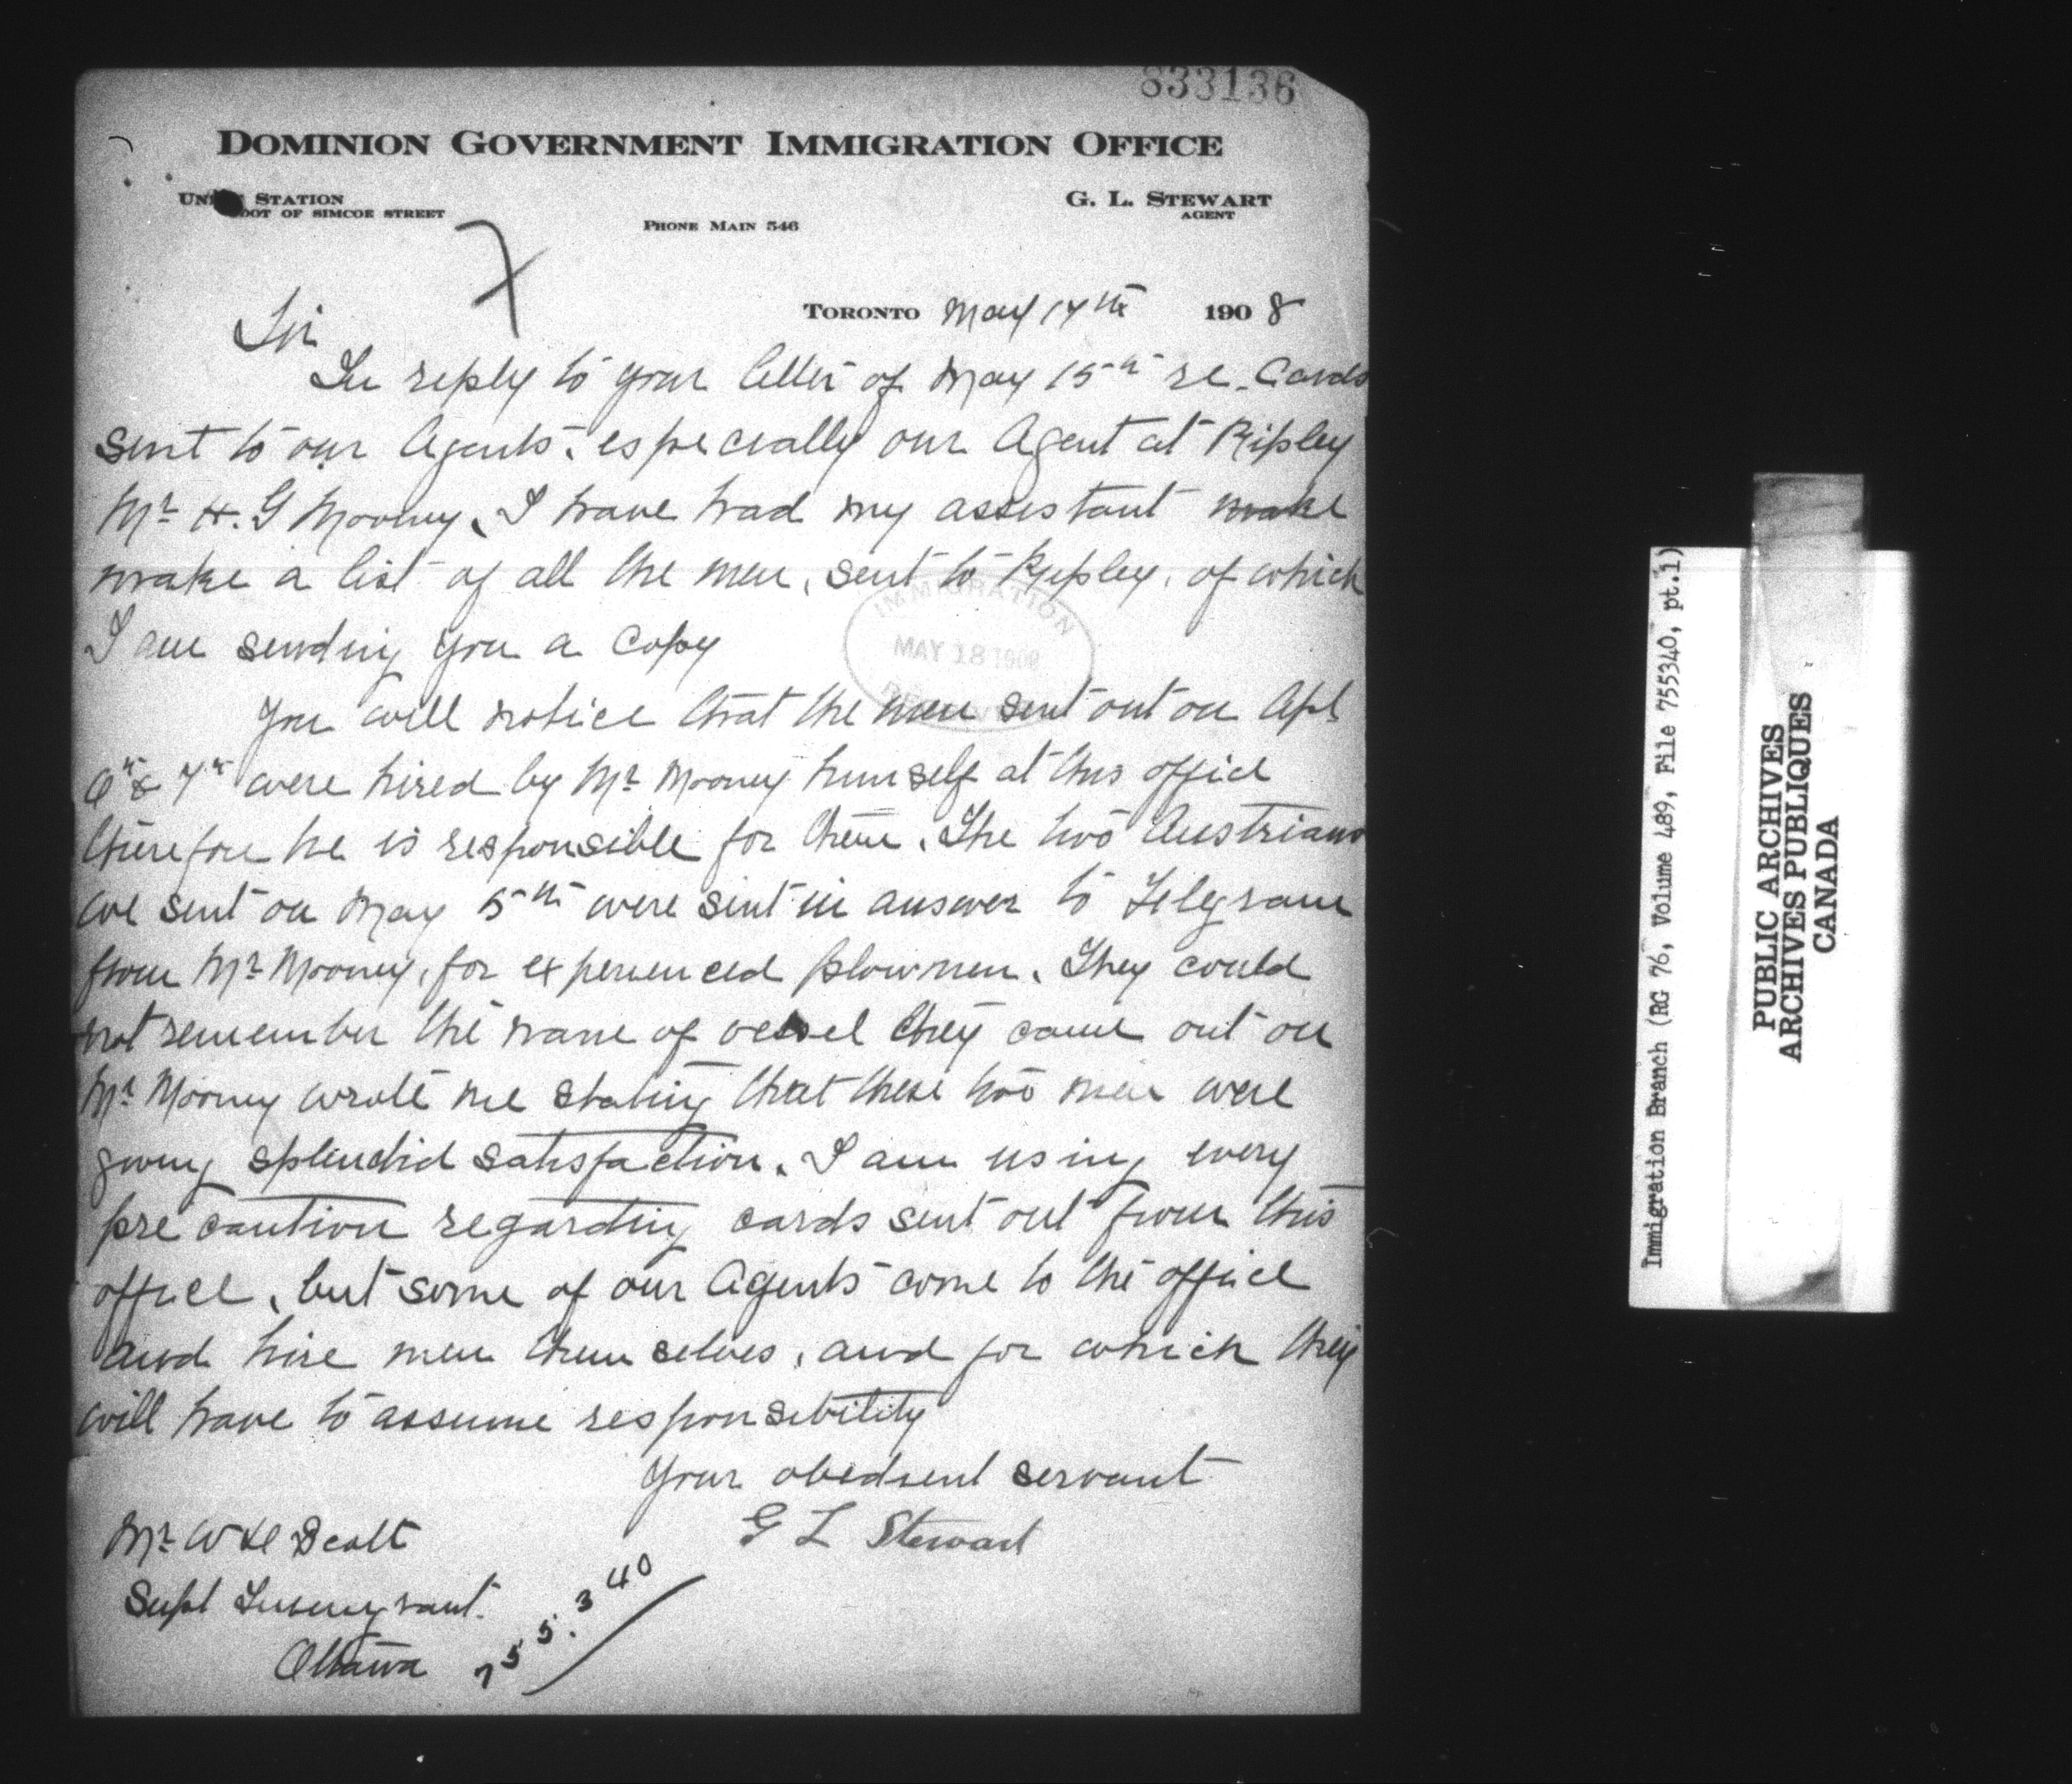 833136
DOMINION GOVERNMENT IMMIGRATION OFFICE
UNION STATION
FOOT OF SIMCOE STREET
G. L. STEWART
AGENT
PHONE MAIN 546
TORONTO May 17th 1908
Sir
In reply to your letter of May 15th re. Cards
sent to our Agents, especially our Agent at Ripley
Mr H. G Mooney, I have had my assistant make
make a list of all the men, sent to Ripley, of which
I am sending you a Copy
IMMIGRATION
MAY 18 1908
RECEIVED
You will notice that the men sent out on Apl
6th & 7th were hired by Mr Mooney himself at this office
therefore he is responsible for them. The two Austrians
we sent on May 5th were sent in answer to Telegram
from Mr Mooney, for experienced plowmen. They could
not remember the name of vessel they came out on
Mr Mooney wrote me stating that these two men were
giving splendid satisfaction. I am using every
precaution regarding cards sent out from this
office, but some of our Agents come to the office
and hire men themselves, and for which they
will have to assume responsibility
Your obedient servant
G L Stewart
Mr W H Scott
Supt Immigrant.
Ottawa
755.340
Immigration Branch (RG 76, Volume 489, File 755340, pt.1)
PUBLIC ARCHIVES
ARCHIVES PUBLIQUES
CANADA